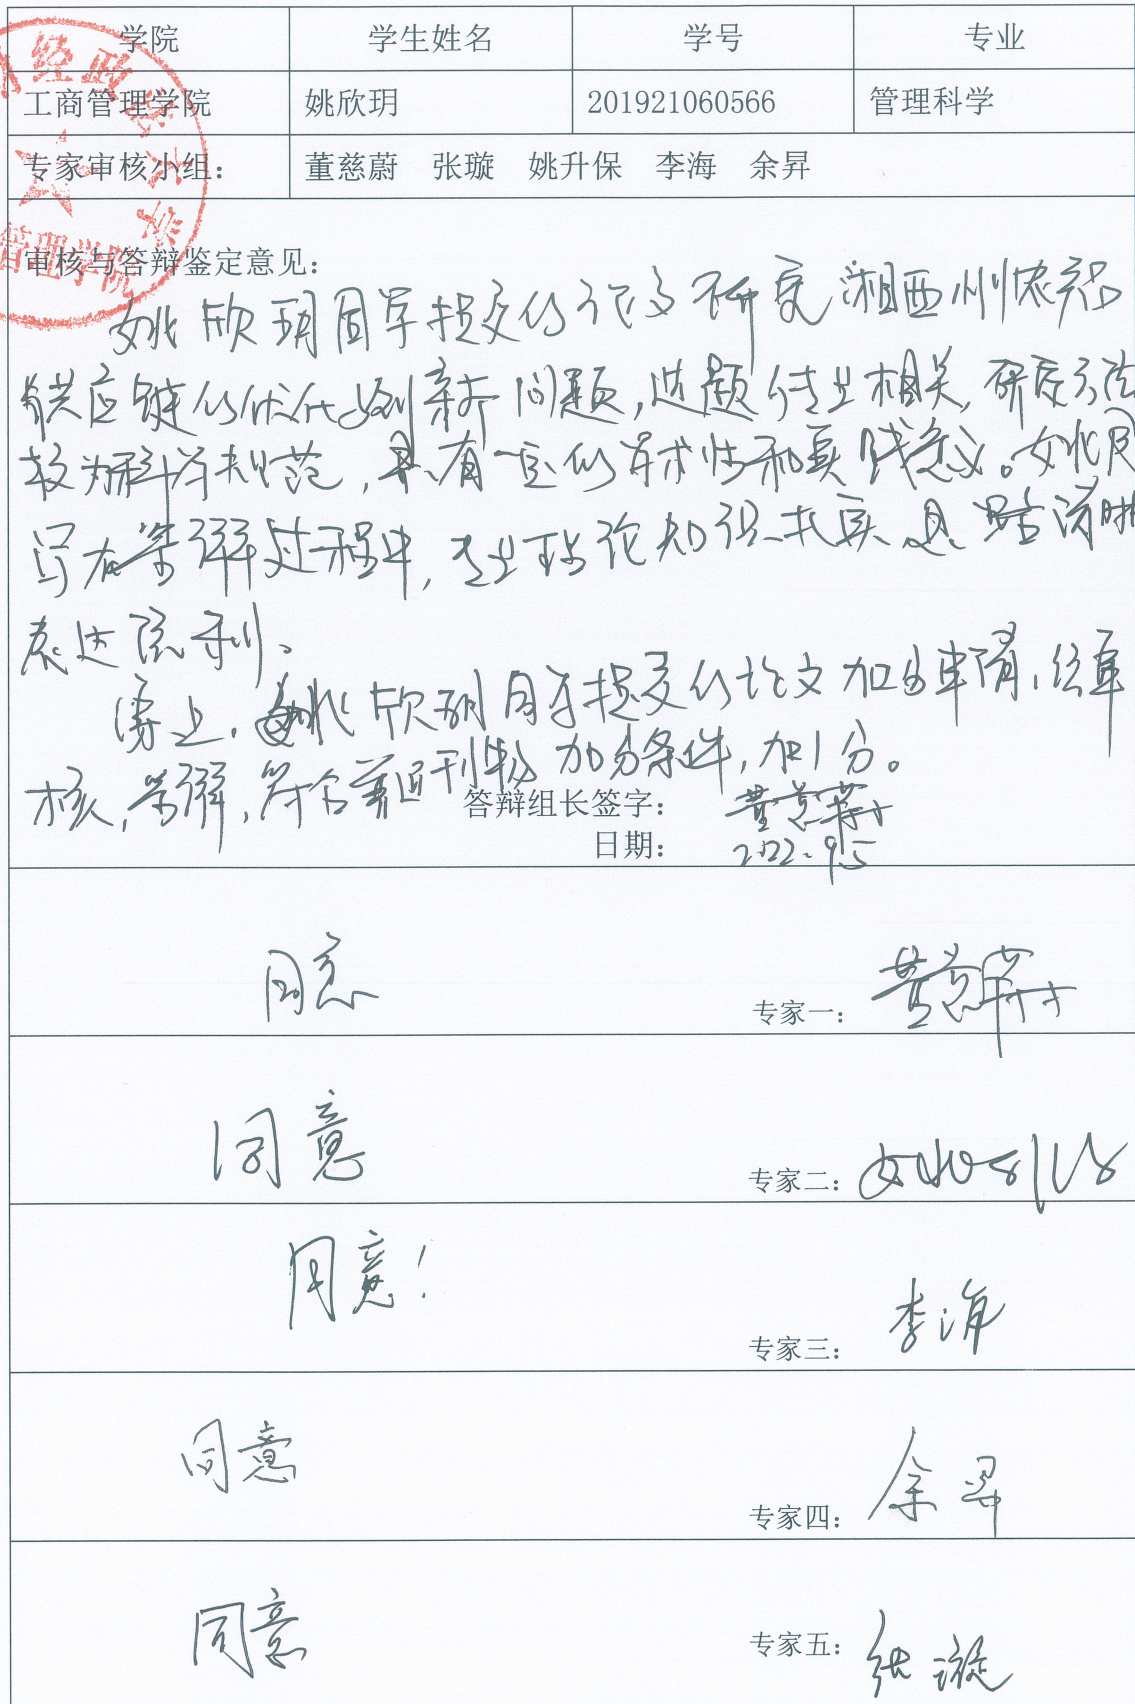 学院 学生姓名 学号 专业
工商管理学院 姚欣玥 201921060566 管理科学
专家审核小组： 董慈蔚 张璇 姚升保 李海 余昇
经政法大学
管理学院
审核与答辩鉴定意见：
姚欣玥同学提交的论文研究湘西州农产品
供应链的优化与创新问题，选题与专业相关，研究方法
较为科学规范，具有一定的学术性和实践意义。姚同
学在答辩过程中，专业理论知识扎实，思路清晰
表达流利。
综上，姚欣玥同学提交的论文加分申请，经审
核，答辩，符合普通刊物加分条件，加1分。
答辩组长签字： 董慈蔚
日期： 2022.9.5
同意 专家一： 董慈蔚
同意 专家二： 姚升保
同意！ 专家三： 李海
同意 专家四： 余昇
同意 专家五： 张璇